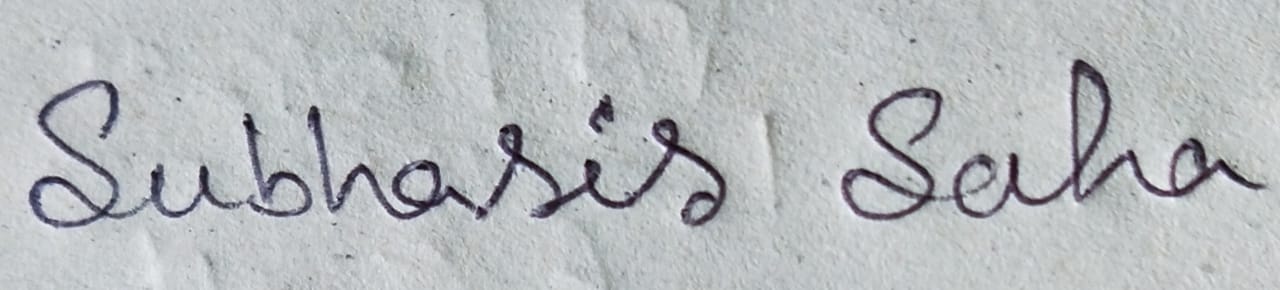 Subhasis Saha